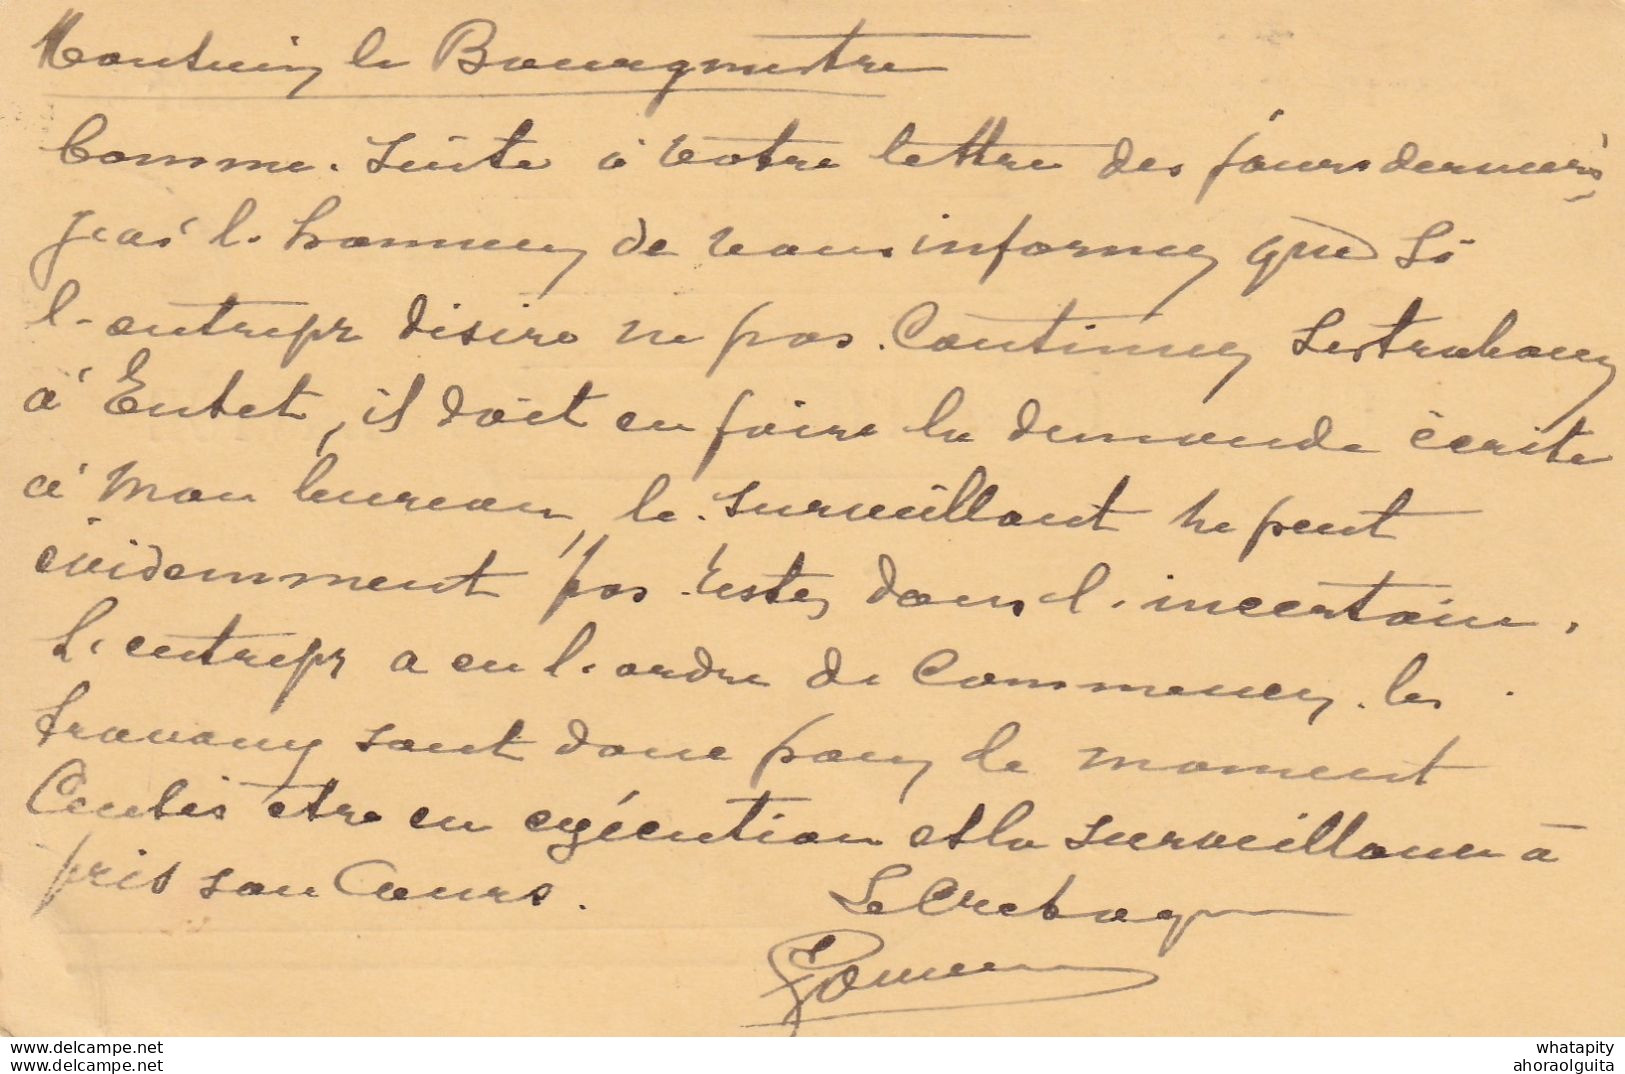 Monsieur le Bourgmestre
Comme suite à votre lettre des jours derniers,
j'eai l'honneur de vous informer que si
l'entrepr désire ne pas continuer les travaux
à Entet, il doit en faire la demande écrite
à mon bureau, le surveillant ne peut
évidemment pas rester dans l'incertain.
L'entrepr a eu l'ordre de commencer, les
travaux sont donc pour le moment
censés être en exécution et la surveillance a
pris son cours.
Le
www.delcampe.net
www.delcampe.net
whatapity
ahoraolguita